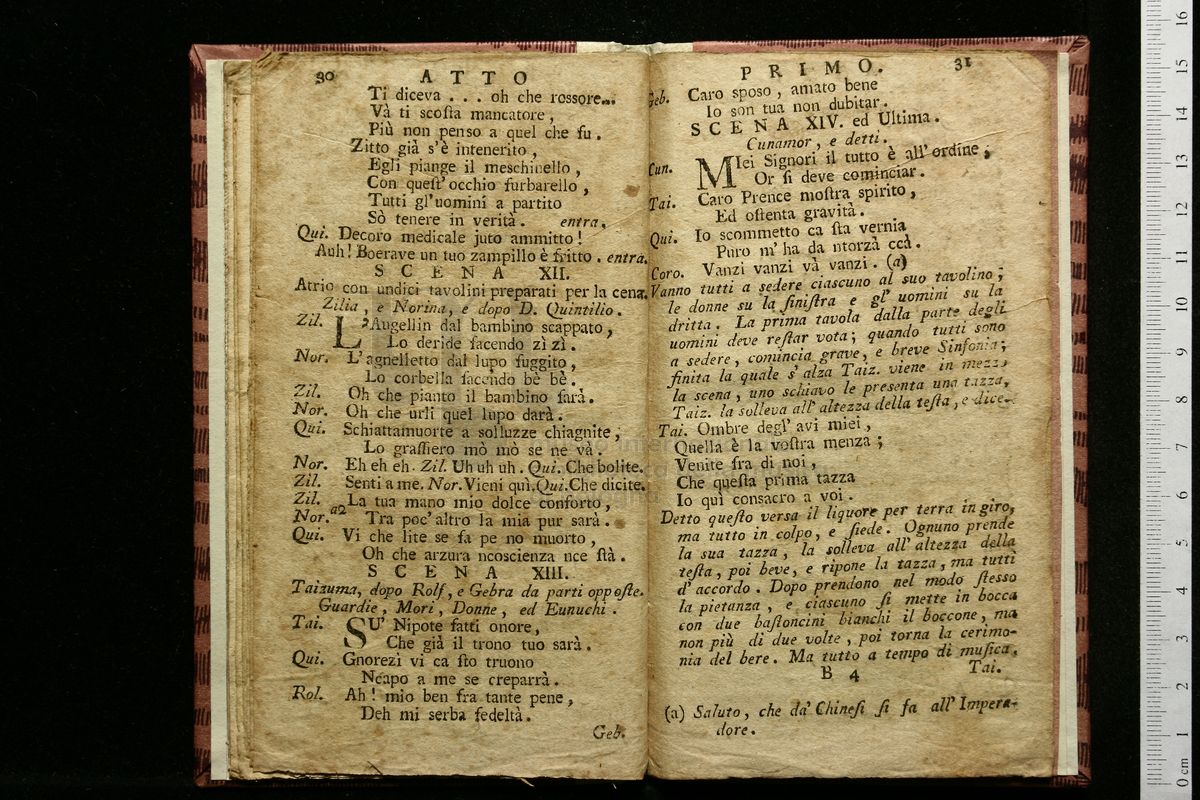 30 ATTO
Ti diceva . . . oh che rossore...
Và ti scosta mancatore,
Più non penso a quel che fu.
Zitto già s'è intenerito,
Egli piange il meschinello,
Con quest' occhio furbarello,
Tutti gl'uomini a partito
Sò tenere in verità. entra.
Qui. Decoro medicale juto ammitto!
Auh! Boerave un tuo zampillo è fritto. entra.
SCENA XII.
Atrio con undici tavolini preparati per la cena.
Zilia, e Norina, e dopo D. Quintilio.
Zil. L'Augellin dal bambino scappato,
Lo deride facendo zì zì.
Nor. L'agnelletto dal lupo fuggito,
Lo corbella facendo bè bè.
Zil. Oh che pianto il bambino farà.
Nor. Oh che urli quel lupo darà.
Qui. Schiattamuorte a solluzze chiagnite,
Lo grassiero mò mò se ne và.
Nor. Eh eh eh. Zil. Uh uh uh. Qui. Che bolite.
Zil. Senti a me. Nor. Vieni quì. Qui. Che dicite.
Zil. La tua mano mio dolce conforto,
Nor. a2 Tra poc' altro la mia pur sarà.
Qui. Vi che lite se fa pe no muorto,
Oh che arzura ncoscienza nce stà.
SCENA XIII.
Taizuma, dopo Rolf, e Gebra da parti opposte.
Guardie, Mori, Donne, ed Eunuchi.
Tai. SU' Nipote fatti onore,
Che già il trono tuo sarà.
Qui. Gnorezì vi ca sto truono
Ncapo a me se creparrà.
Rol. Ah! mio ben fra tante pene,
Deh mi serba fedeltà.
Geb.
PRIMO. 31
Geb. Caro sposo, amato bene
Io son tua non dubitar.
SCENA XIV. ed Ultima.
Cunamor, e detti.
Cun. MIei Signori il tutto è all'ordine;
Or si deve cominciar.
Tai. Caro Prence mostra spirito,
Ed ostenta gravità.
Qui. Io scommetto ca sta vernia
Puro m' ha da ntorzà ccà.
Coro. Vanzi vanzi và vanzi. (a)
Vanno tutti a sedere ciascuno al suo tavolino;
le donne su la sinistra e gl' uomini su la
dritta. La prima tavola dalla parte degli
uomini deve restar vota; quando tutti sono
a sedere, comincia grave, e breve Sinfonia;
finita la quale s' alza Taiz. viene in mezzo
la scena, uno schiavo le presenta una tazza,
Taiz. la solleva all' altezza della testa, e dice.
Tai. Ombre degl' avi miei,
Quella è la vostra menza;
Venite fra di noi,
Che questa prima tazza
Io quì consacro a voi.
Detto questo versa il liquore per terra in giro,
ma tutto in colpo, e siede. Ognuno prende
la sua tazza, la solleva all' altezza della
testa, poi beve, e ripone la tazza, ma tutti
d' accordo. Dopo prendono nel modo stesso
la pietanza, e ciascuno si mette in bocca
con due bastoncini bianchi il boccone, ma
non più di due volte, poi torna la cerimo-
nia del bere. Ma tutto a tempo di musica.
B 4 Tai.
(a) Saluto, che da' Chinesi si fa all' Impera-
dore.
0 cm 1 2 3 4 5 6 7 8 9 10 11 12 13 14 15 16